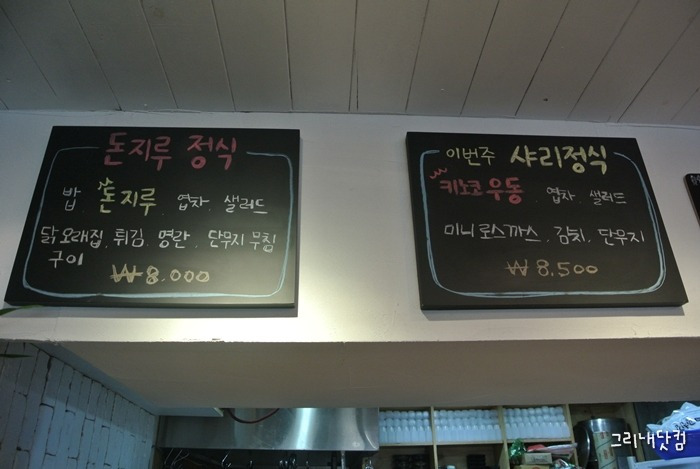 돈지루 정식
밥, 돈지루, 엽차, 샐러드
닭오래집, 튀김, 명란, 단무지무침
구이
₩8,000
이번주 샤리정식
키노코우동, 엽차, 샐러드
미니로스까스, 김치, 단무지
₩8,500
그리내닷컴